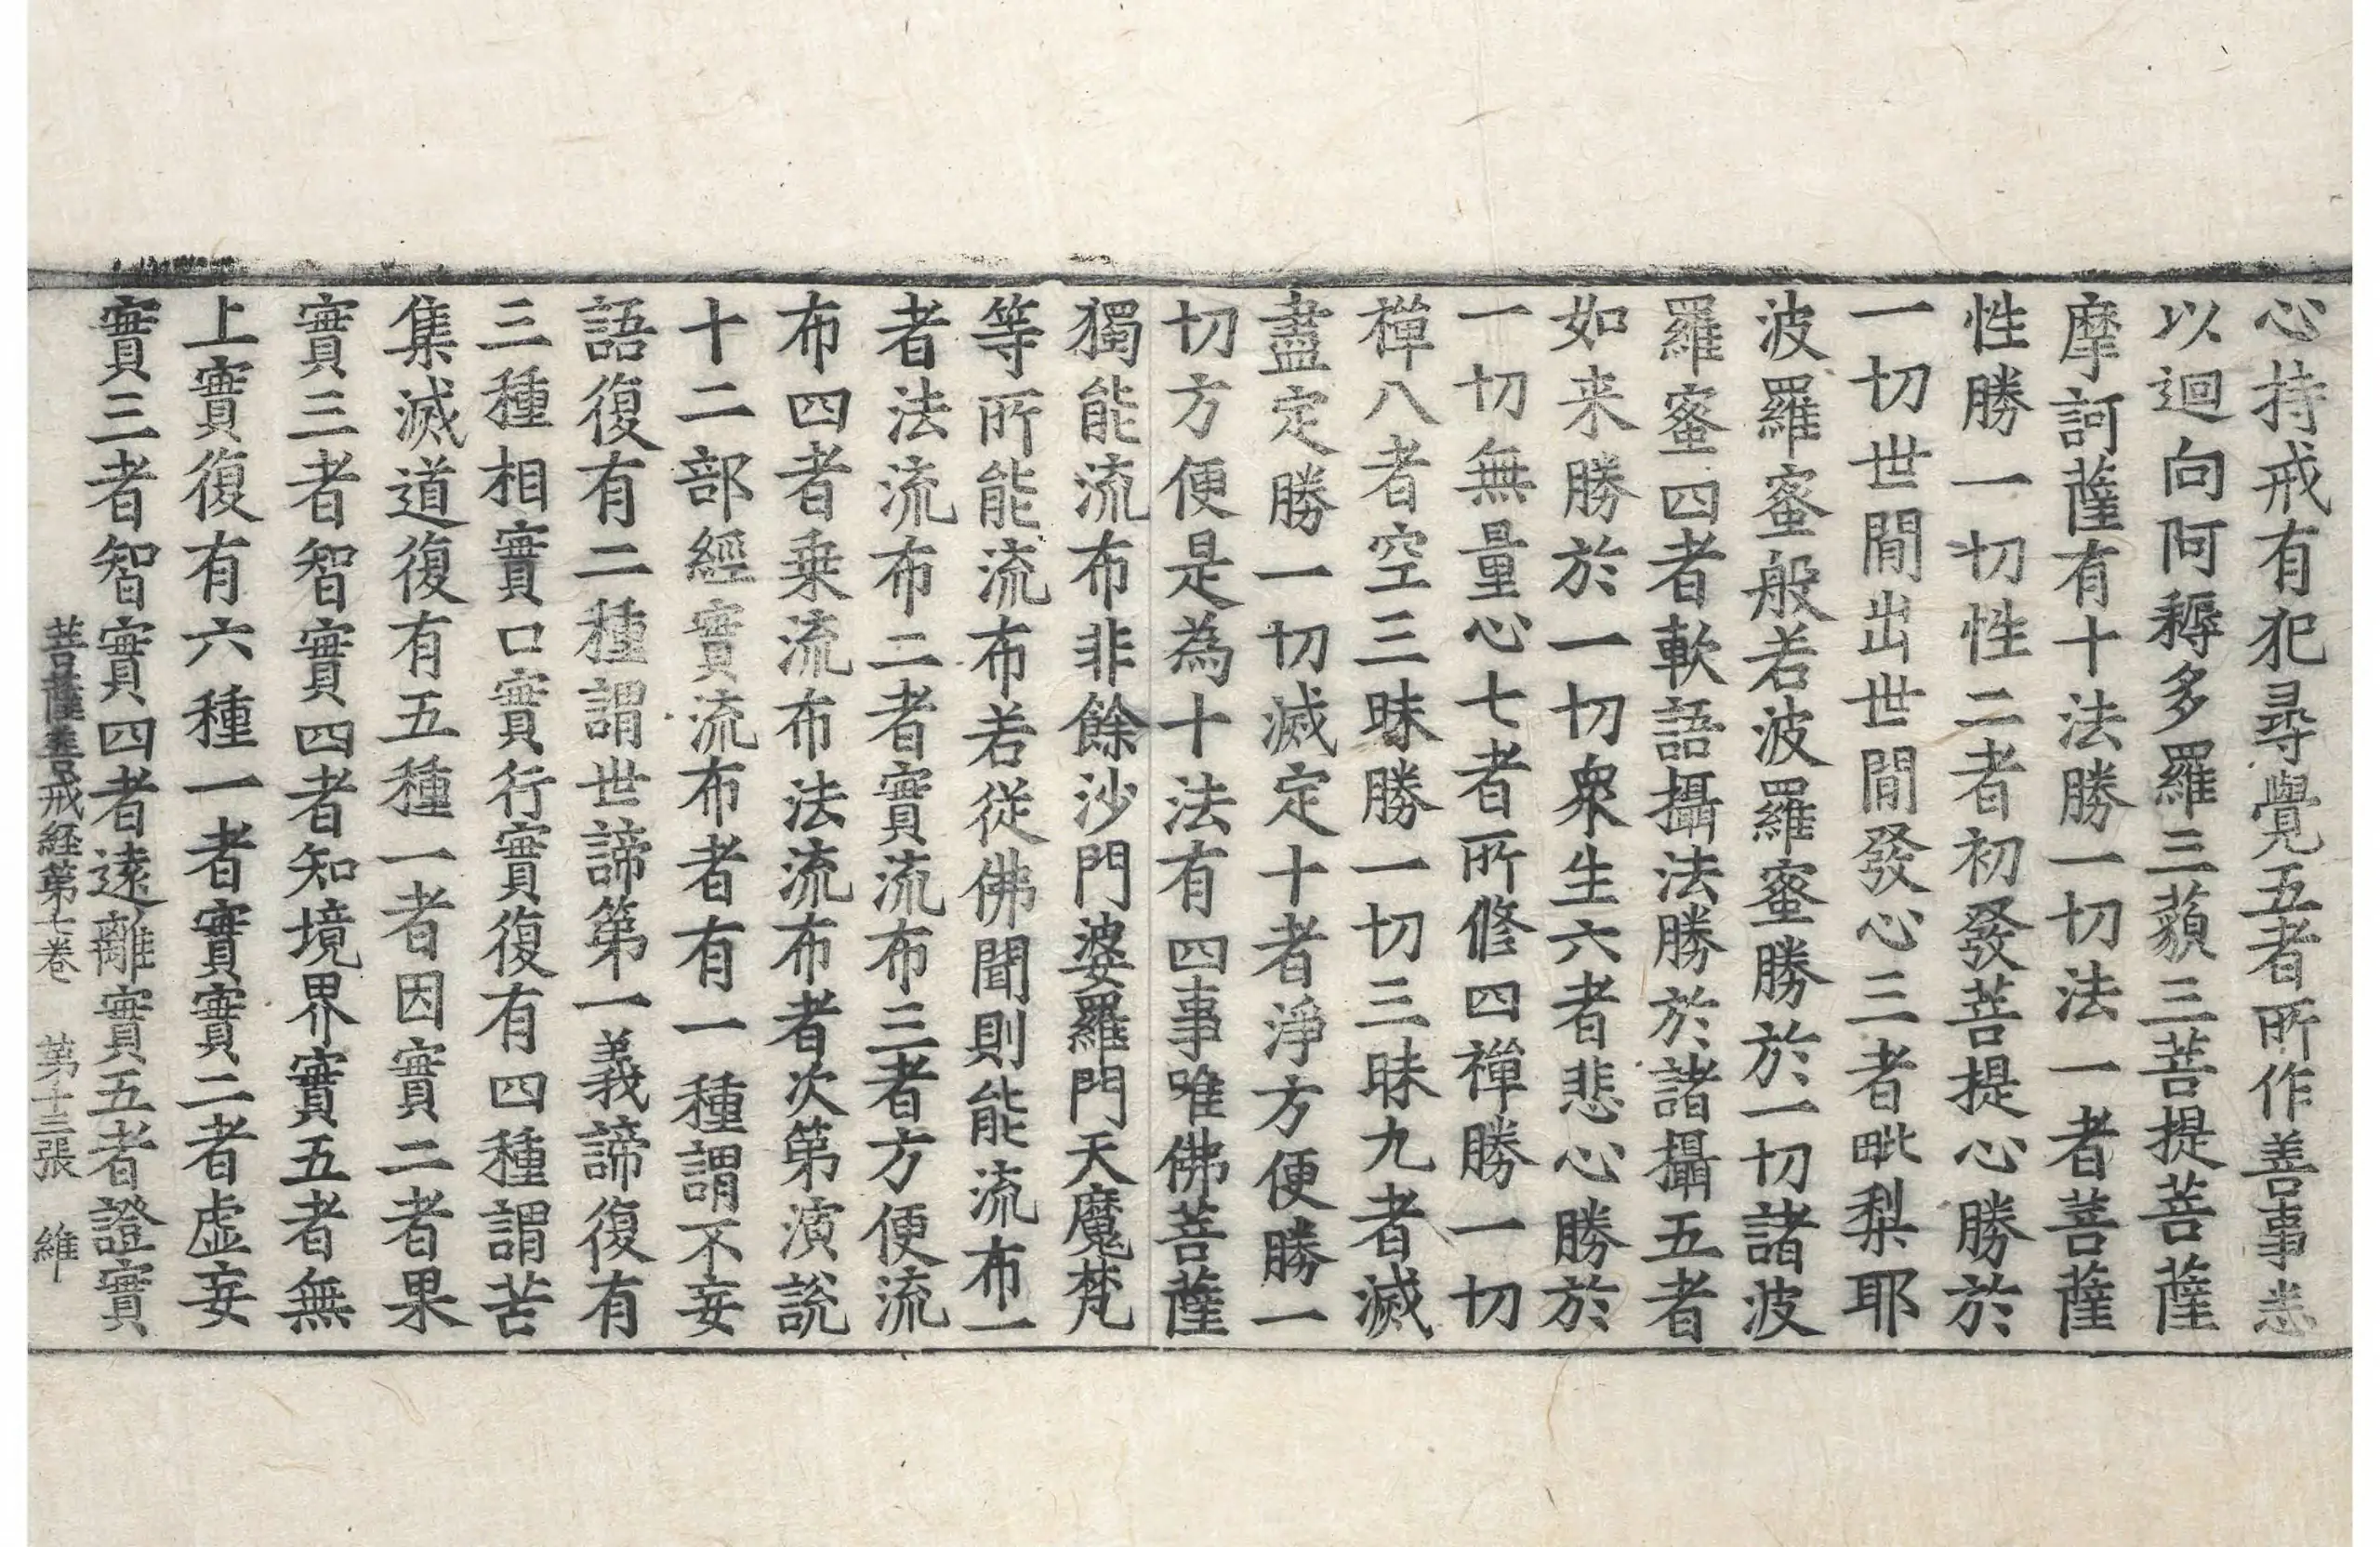 心持戒有犯尋覺五者所作善事悉
以迴向阿耨多羅三藐三菩提菩薩
摩訶薩有十法勝一切法一者菩薩
性勝一切性二者初發菩提心勝於
一切世閒出世閒發心三者毗梨耶
波羅蜜般若波羅蜜勝於一切諸波
羅蜜四者軟語攝法勝於諸攝五者
如来勝於一切衆生六者悲心勝於
一切無量心七者所修四禪勝一切
禪八者空三昧勝一切三昧九者滅
盡定勝一切滅定十者淨方便勝一
切方便是為十法有四事唯佛菩薩
獨能流布非餘沙門婆羅門天魔梵
等所能流布若從佛聞則能流布一
者法流布二者實流布三者方便流
布四者乗流布法流布者次第演說
十二部經實流布者有一種謂不妄
語復有二種謂世諦第一義諦復有
三種相實口實行實復有四種謂苦
集滅道復有五種一者因實二者果
實三者智實四者知境界實五者無
上實復有六種一者實實二者虛妄
實三者智實四者遠離實五者證實
菩薩善戒経第七卷 第十三張 維